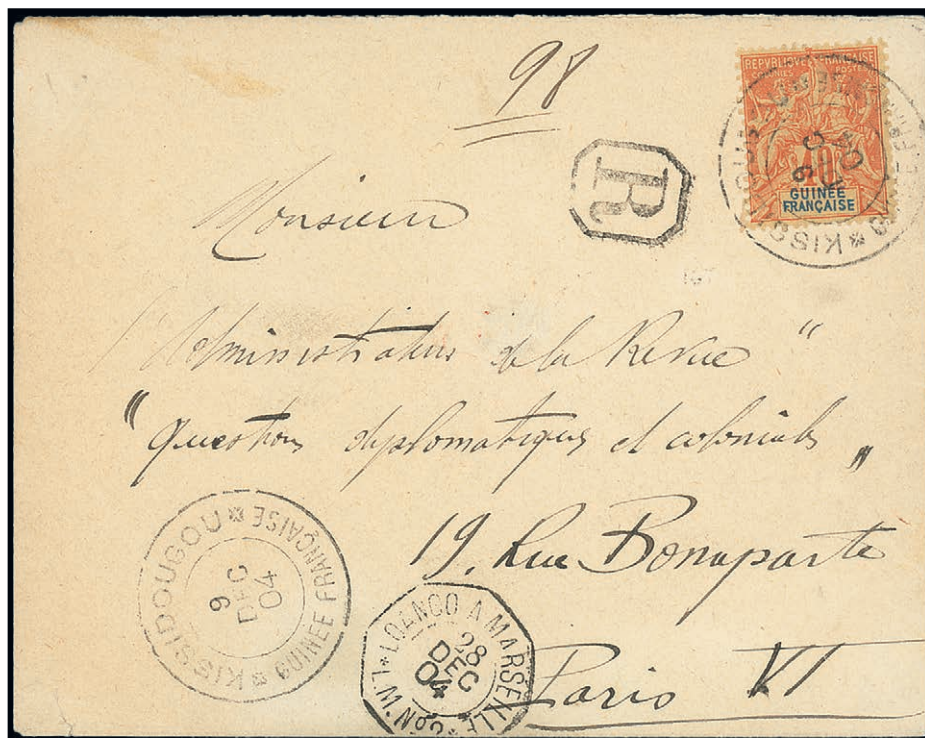 98
REPUBLIQUE FRANÇAISE
COLONIES POSTES
40
GUINÉE
FRANÇAISE
R
Monsieur
l'Administrateur de la Revue "
" questions diplomatiques et coloniales "
19, Rue Bonaparte
Paris VI
KISSIDOUGOU * GUINÉE FRANÇAISE *
9
DEC
04
LOANGO A MARSEILLE
L.N.
28
DEC
04